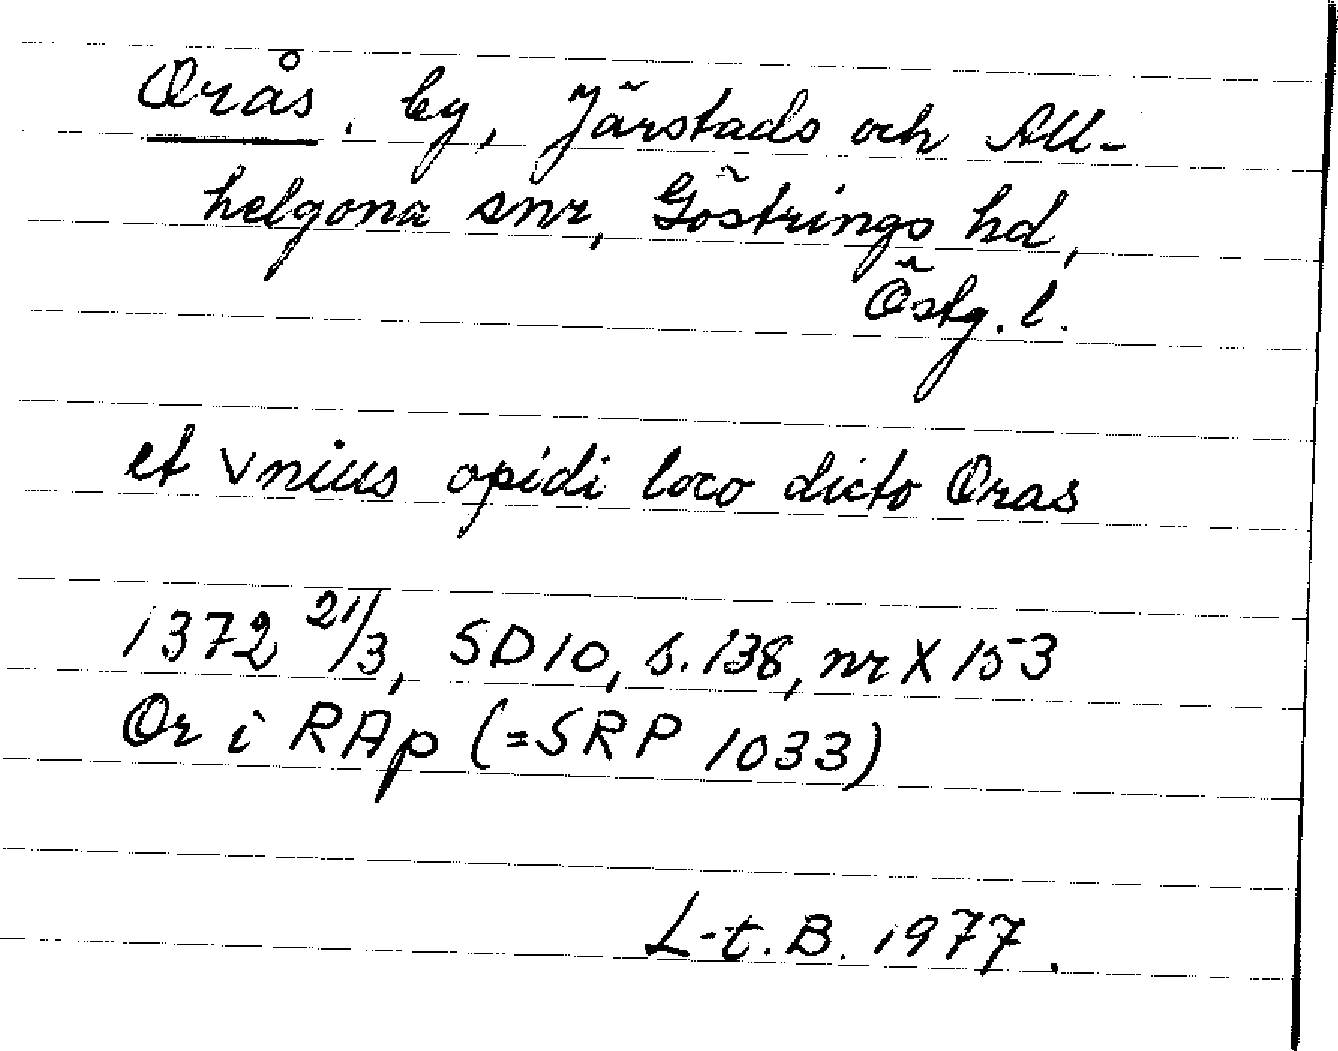 Orås, by, Järstads och All-
helgona snr, Göstrings hd,
Östg. l.
et vnius opidi loco dicto Oras
1372 21/3, SD 10, s. 138, nr X 153
Or i RAp (=SRP 1033)
L-t. B. 1977.